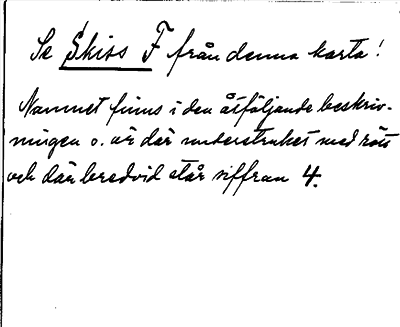 Se Skiss F från denna karta!
Namnet finns i den åtföljande beskriv-
ningen o. är där understruket med rött
och där bredvid står siffran 4.